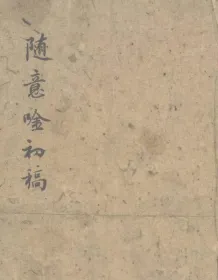 随意唫初稿